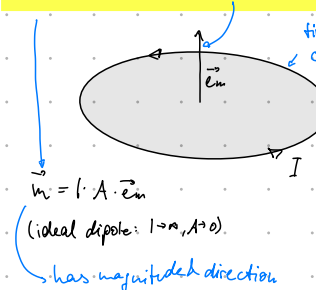 e⃗m
I
m⃗ = I · A · e⃗m
(ideal dipole: I→∞, A→0)
has magnitude & direction